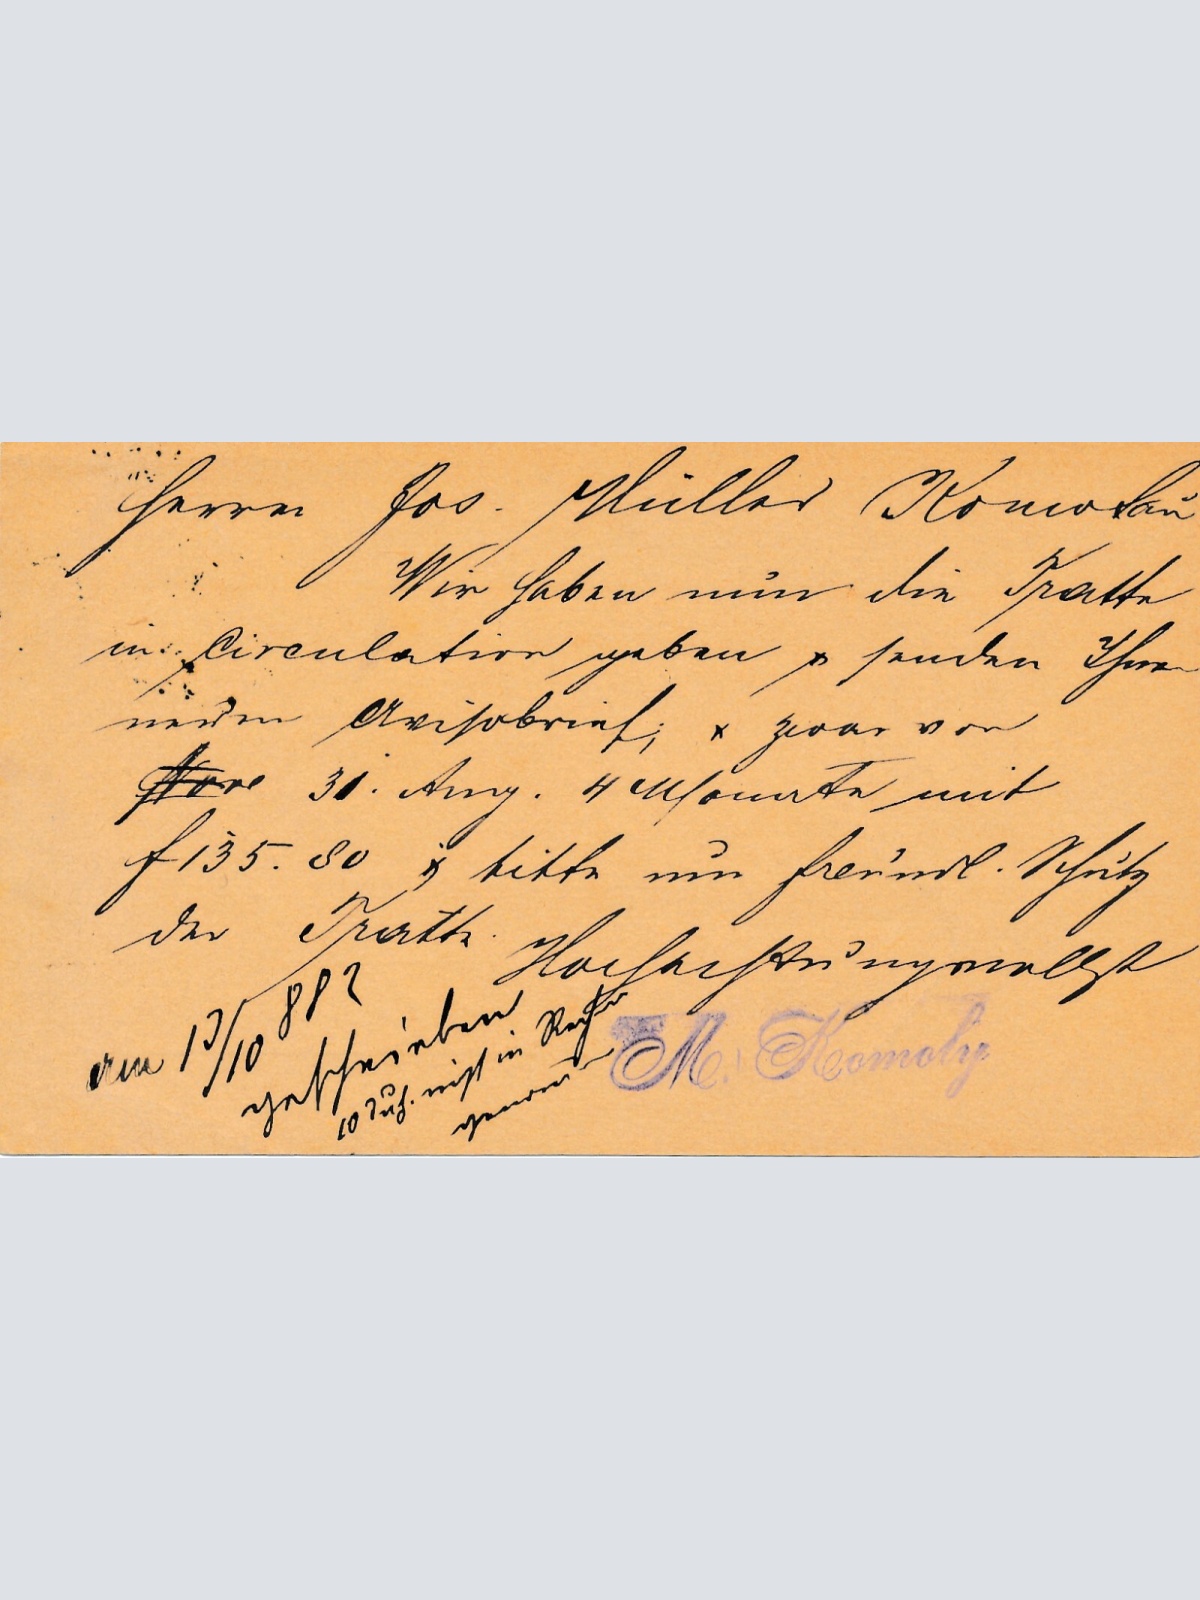 Herrn Jos. Müller Komotau
Wir haben nun die Tratte
in Circulation geben & senden Ihnen
neuen Avisobrief; & zwar von
31. Aug. 4 Monate mit
f 135.80 & bitte um freundl. Schutz
der Tratte.
Hochachtungsvollst
M. Komoly
am 13/10 882
geschrieben
10 nicht in Rechn